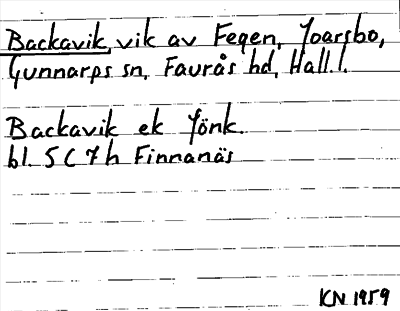 Backavik, vik av Fegen, Yoarsbo,
Gunnarps sn, Faurås hd, Hall. l.
Backavik ek Jönk.
bl. 5 C 7 h Finnanäs
KN 1959